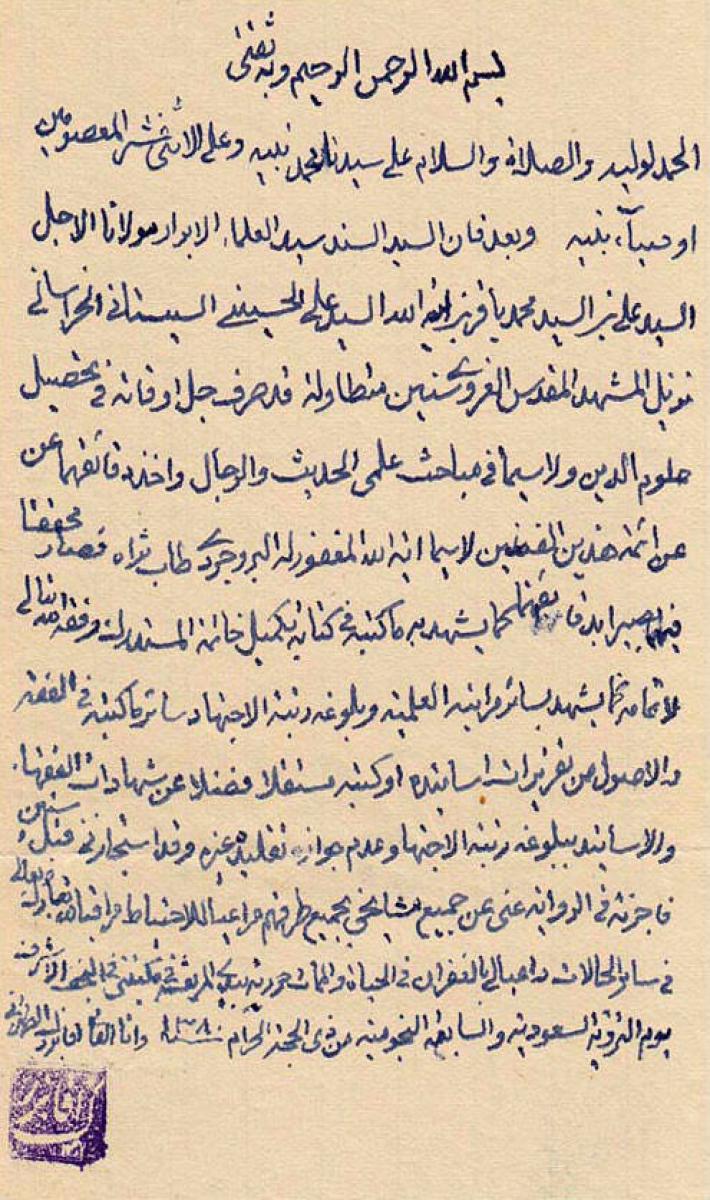 بسم الله الرحمن الرحيم وبه ثقتي
الحمد لوليه والصلاة والسلام على سيدنا محمد نبيه وعلى الاثنى عشر المعصومين
اوصياء نبيه وبعد فان السيد السند سيد العلماء الابرار مولانا الاجل
السيد علي بن السيد محمد باقر بن السيد علي الحسيني السيستاني الخراساني
نزيل المشهد المقدس الغروي سنين متطاولة قد صرف جل اوقاته في تحصيل
علوم الدين ولا سيما في مباحث علمي الحديث والرجال واخذ دقائقهما عن
عن ائمة هذين الفنين لا سيما اية الله المغفور له البروجردي طاب ثراه فصار محققا
فيهما بصيرا بدقائقهما كما يشهد به ما كتبه في كتابه تكميل خاتمة المستدرك وفقه الله تعالى
لاتمامه كما يشهد بسائر مراتبه العلمية وبلوغه رتبة الاجتهاد سائر ما كتبه في الفقه
والاصول من تقريرات اساتيده او كتبه مستقلا فضلا عن شهادات الفقهاء
والاساتيد ببلوغه رتبة الاجتهاد وعدم جواز تقليده غيره وقد استجازني قبل سنين
فاجزته في الرواية عني عن جميع مشايخي بجميع طرقهم مراعيا للاحتياط مراقبا لله تعالى
في سائر الحالات داعيا لي بالغفران في الحياة والممات حررته بيدي المرتعشة في مكتبتي في النجف الاشرف
يوم التروية السعودية والسابعة النجومية من ذي الحجة الحرام سنة ١٣٨٠ وانا الفاني اقا بزرك الطهراني